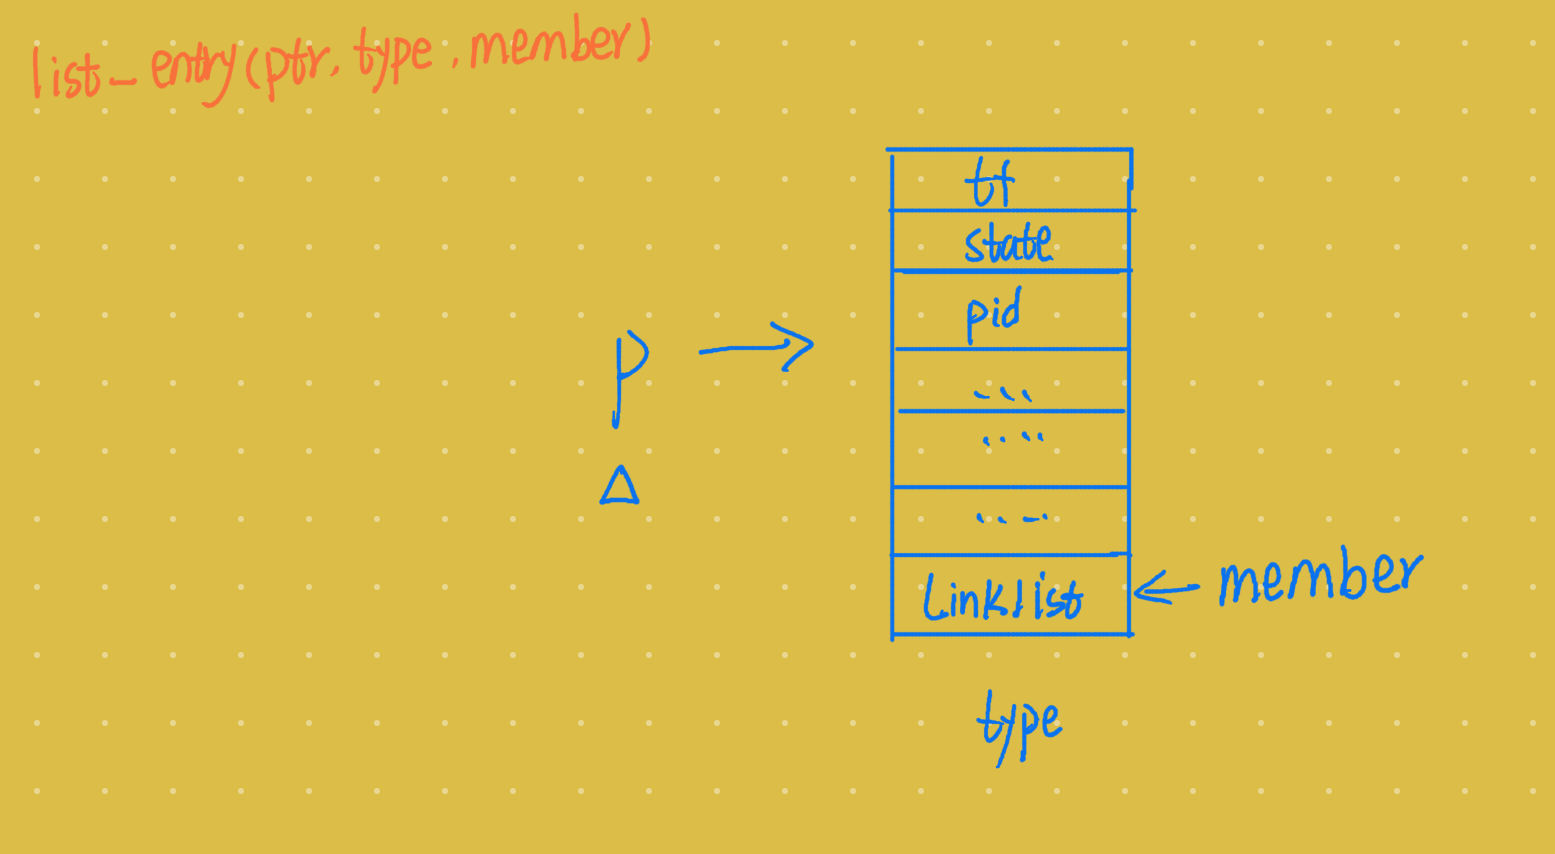 list_entry(ptr, type, member)
tf
state
pid
...
....
....
p
Linklist
member
type